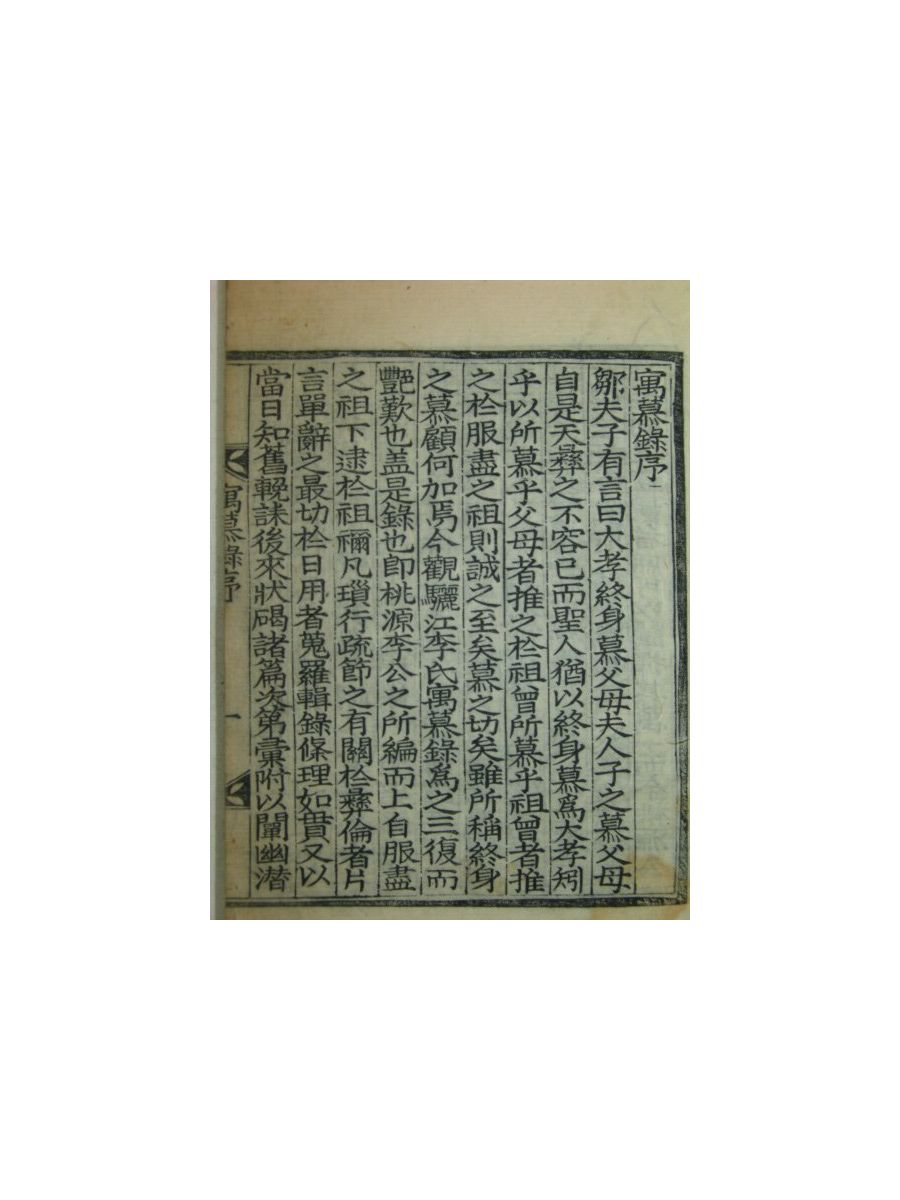 寓慕錄序
鄒夫子有言曰大孝終身慕父母夫人子之慕父母
自是天彛之不容已而聖人猶以終身慕爲大孝矧
乎以所慕乎父母者推之於祖曾所慕乎祖曾者推
之於服盡之祖則誠之至矣慕之切矣雖所稱終身
之慕顧何加焉今觀驪江李氏寓慕錄爲之三復而
艶歎也盖是錄也卽桃源李公之所編而上自服盡
之祖下逮於祖禰凡瑣行疏節之有關於彛倫者片
言單辭之最切於日用者蒐羅輯錄條理如貫又以
當日知舊輓誄後來狀碣諸篇次第彙附以闡幽潛
寓慕錄序
一